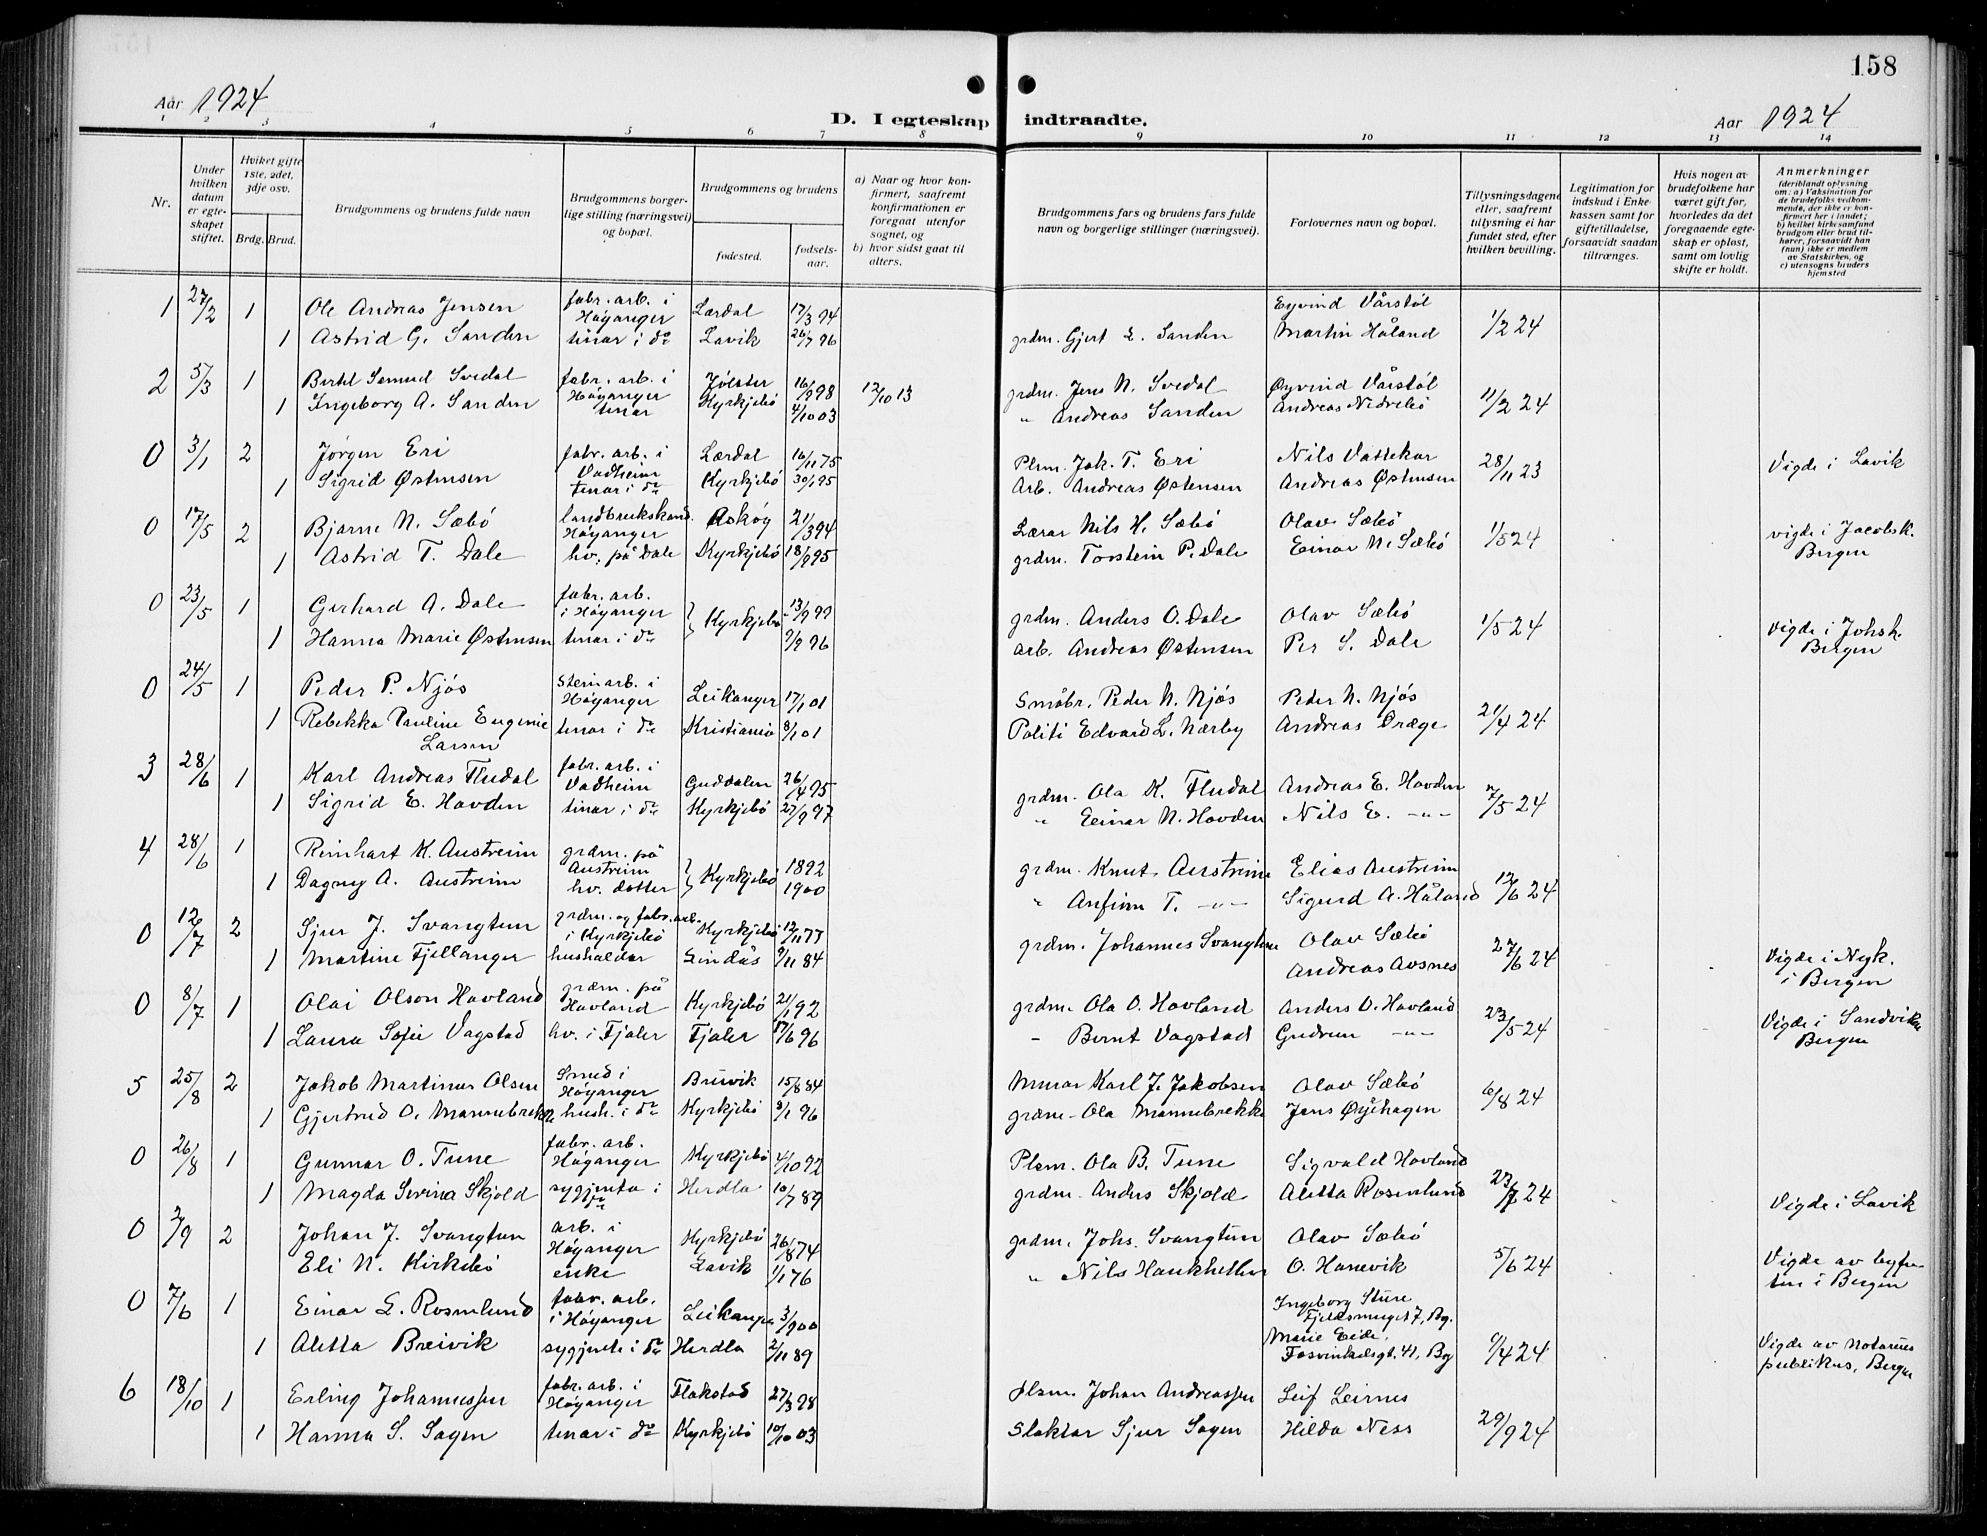 158
Aar 1924
D. I egteskap indtraadte.
Aar 1924
1 2 3 4 5 6 7 8 9 10 11 12 13 14
Nr.
Under hvilken datum er egteskapet stiftet.
Hvilket gifte 1ste, 2det, 3dje osv.
Brdg. Brud.
Brudgommens og brudens fulde navn
Brudgommens borgerlige stilling (næringsvei) og bopæl.
Brudgommens og brudens
fødested.
fødselsaar.
a) Naar og hvor konfirmert, saafremt konfirmationen er foregaat utenfor sognet, og
b) hvor sidst gaat til alters.
Brudgommens fars og brudens fars fulde navn og borgerlige stillinger (næringsvei).
Forlovernes navn og bopæl.
Tillysningsdagene eller, saafremt tillysning ei har fundet sted, efter hvilken bevilling.
Legitimation for indskud i Enkekassen samt for giftetilladelse, forsaavidt saadan tiltrænges.
Hvis nogen av brudefolkene har været gift før, hvorledes da det foregaaende egteskap er opløst, samt om lovlig skifte er holdt.
Anmerkninger
(deriblandt oplysning om: a) Vaksination for de brudefolks vedkommende, der ikke er konfirmert her i landet; b) hvilket kirkesamfund brudgom eller brud tilhører, forsaavidt han (hun) ikke er medlem av Statskirken, og c) utensogns bruders hjemsted
1 27/2 1 Ole Andreas Jensen fabr. arb. i Høyanger Lærdal 17/3 94 Eyvind Vårstøl
1 Astrid G. Sanden tenar i do Lavik 26/7 96 grdm. Gjert L. Sanden Martin Håland 1/2 24
2 5/3 1 Bertel Semund Svedal fabr. arb. i Høyanger Jølster 16/9 98 12/10 13 grdm. Jens N. Svedal Øyvind Vårstøl
1 Ingeborg A. Sanden tenar Kyrkjebö 4/10 03 " Andreas Sanden Andreas Nedrebö 11/2 24
0 3/1 2 Jørgen Eri fabr. arb. i Vadheim Lærdal 16/11 75 Plsm. Jak. T. Eri Nils Vattekar
1 Sigrid Østensen tenar i do Kyrkjebö 30/1 95 Arb. Andreas Østensen Andreas Østensen 28/11 23 Vigde i Lavik
0 17/5 2 Bjarne N. Sæbö landbrukskand. Høyanger Askøy 21/3 94 Lærar Nils H. Sæbö Olav Sæbö
1 Astrid T. Dale hv. på Dale Kyrkjebö 18/9 95 grdm. Torstein P. Dale Einar N. Sæbö 1/5 24 vigde i Jacobsk. Bergen
0 23/5 1 Gerhard A. Dale fabr. arb. i Høyanger Kyrkjebö 13/9 99 grdm. Anders O. Dale Olav Sæbö
1 Hanna Marie Østensen tenar i do 9/9 96 arb. Andreas Østensen Per S. Dale 1/5 24 Vigde i Johsk. Bergen
0 24/5 1 Peder P. Njøs steinarb. i Høyanger Leikanger 17/1 01 Småbr. Peder N. Njøs Peder N. Njøs
1 Rebekka Pauline Eugenie Larsen tenar i do Kristiania 8/1 01 Politi Edvard L. Nærby Andreas Dræge 21/4 24
3 28/6 1 Karl Andreas Fludal fabr. arb. i Vadheim Guddalen 26/4 95 grdm. Ola K. Fludal Andreas E. Hovden
1 Sigrid E. Hovden tenar i do Kyrkjebö 27/9 97 " Einar N. Hovden Nils E. -"- 7/5 24
4 28/6 1 Reinhart K. Austreim grdm. på Austreim Kyrkjebö 1892 grdm. Knut Austreim Elias Austreim
1 Dagny A. Austreim hv. dotter 1900 " Anfinn T. -"- Sigurd A. Håland 12/6 24
0 12/7 2 Sjur J. Svangtun grdm. og fabr. arb. i Kyrkjebö Kyrkjebö 12/11 77 grdm. Johannes Svangtun Olav Sæbö
1 Martine Fjellanger hushaldar Lindås 9/11 84 Andreas Avsnes 27/6 24 Vigde i Nyk. i Bergen
0 8/7 1 Olai Olson Hovland grdm. på Hovland Kyrkjebö 21/1 92 grdm. Ola O. Hovland Anders O. Hovland
1 Laura Sofie Vagstad hv. i Fjaler Fjaler 17/6 96 - Bernt Vagstad Gudrun -"- 23/5 24 Vigde i Sandviken Bergen
5 25/8 2 Jakob Martinus Olsen Smed i Høyanger Brevik 15/8 84 Murar Karl J. Jakobsen Olav Sæbö
1 Gjertrud O. Mannebrekke hush. i do Kyrkjebö 8/1 96 grdm - Ola Mannebrekke Jens Øyehagen 6/8 24
0 26/8 1 Gunnar O. Tune fabr. arb. Høyanger Kyrkjebö 4/10 92 Plsm. Ola B. Tune Sigvald Hovland
1 Magda Severina Skjold sygjenta i do Herdla 10/7 89 grdm - Anders Skjold Aletta Rosenlund 23/7 24 Vigde i Lavik
0 2/9 2 Johan J. Svangtun arb. i Høyanger Kyrkjebö 26/8 74 grdm. Johs. Svangtun Olav Sæbö
Eli N. Kirkebö enke Lavik 1/1 76 " Nils Haukhellen O. Hanevik 5/6 24 Vigde av byfuten i Bergen
0 7/6 1 Einar L. Rosenlund fabr. arb. i Høyanger Leikanger 3/9 00 Ingeborg Sture Fjeldsmuget 7, Bg.
1 Aletta Breivik sygjente i do Herdla 2/11 89 Marie Eide, Fosvinkelsgt. 41, Bg /4 24 Vigde av notarius publikus, Bergen
6 18/10 1 Erling Johannessen fabr. arb. i Høyanger Flakstad 27/3 98 plsm. Johan Andreassen Leif Leirnes
1 Hanna S. Sagen tenar i do Kyrkjebö 10/10 03 Slaktar Sjur Sagen Hilda Ness 29/9 24